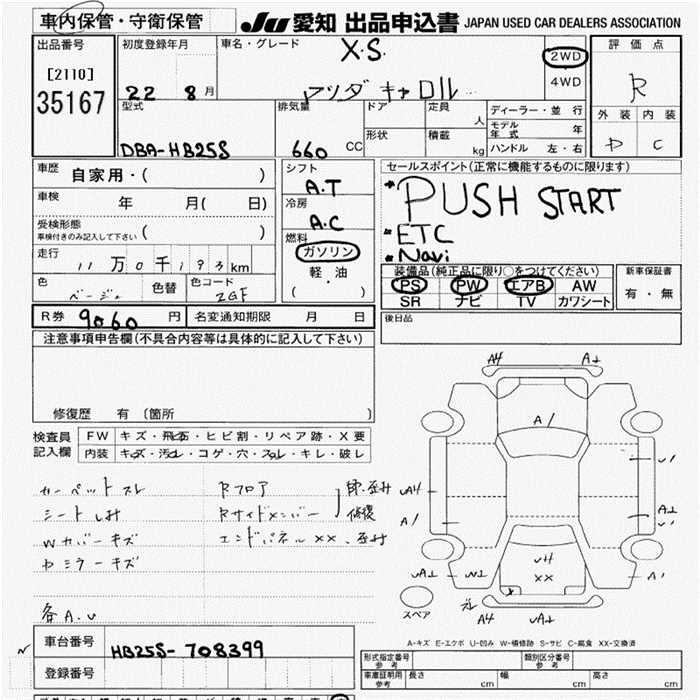 車内保管・守衛保管
JU 愛知 出品申込書 JAPAN USED CAR DEALERS ASSOCIATION
出品番号
[2110]
35167
初度登録年月
22 8 月
車名・グレード
X.S.
マツダ キャロル
2WD
4WD
評価点
R
外装 内装
D C
型式
DBA-HB25S
排気量
660 CC
ドア
定員
人
形状
積載
kg
ディーラー・並行
モデル年式 年
ハンドル 左・右
車歴 自家用・( )
車検 年 月( 日)
受検形態
車検付きのみ記入して下さい ( )
走行
11万0千193km
色
ベージュ
色替
色コード
ZGF
シフト
A.T
冷房
A.C
燃料
ガソリン
軽・油
( )
セールスポイント(正常に機能するものに限ります)
PUSH START
ETC
Navi
装備品(純正品に限り○をつけてください)
PS PW エアB AW
SR ナビ TV カワシート
新車保証書
有・無
R券 9060 円
名変通知期限 月 日
後日品
注意事項申告欄(不具合内容等は具体的に記入して下さい)
修復歴 有 〔箇所 〕
検査員記入欄
FW キズ・飛石・ヒビ割・リペア跡・X要
内装 キズ・汚れ・コゲ・穴・スレ・キレ・破レ
カーペットスレ
シートしみ
Wカバーキズ
Dミラーキズ
各A.U
Rフロア
Rサイドメンバー
修復
エンドパネルXX、歪み
A4
A1
UA4
A1
U1
UH
XX
UA4
A1
スペア
A4
A-キズ E-エクボ U-凹み W-補修跡 S-サビ C-腐食 XX-交換済
車台番号 HB25S-708399
登録番号
形式指定番号
参考
類別区分番号
参考
車庫証明用
参考
長さ cm
幅 cm
高さ cm